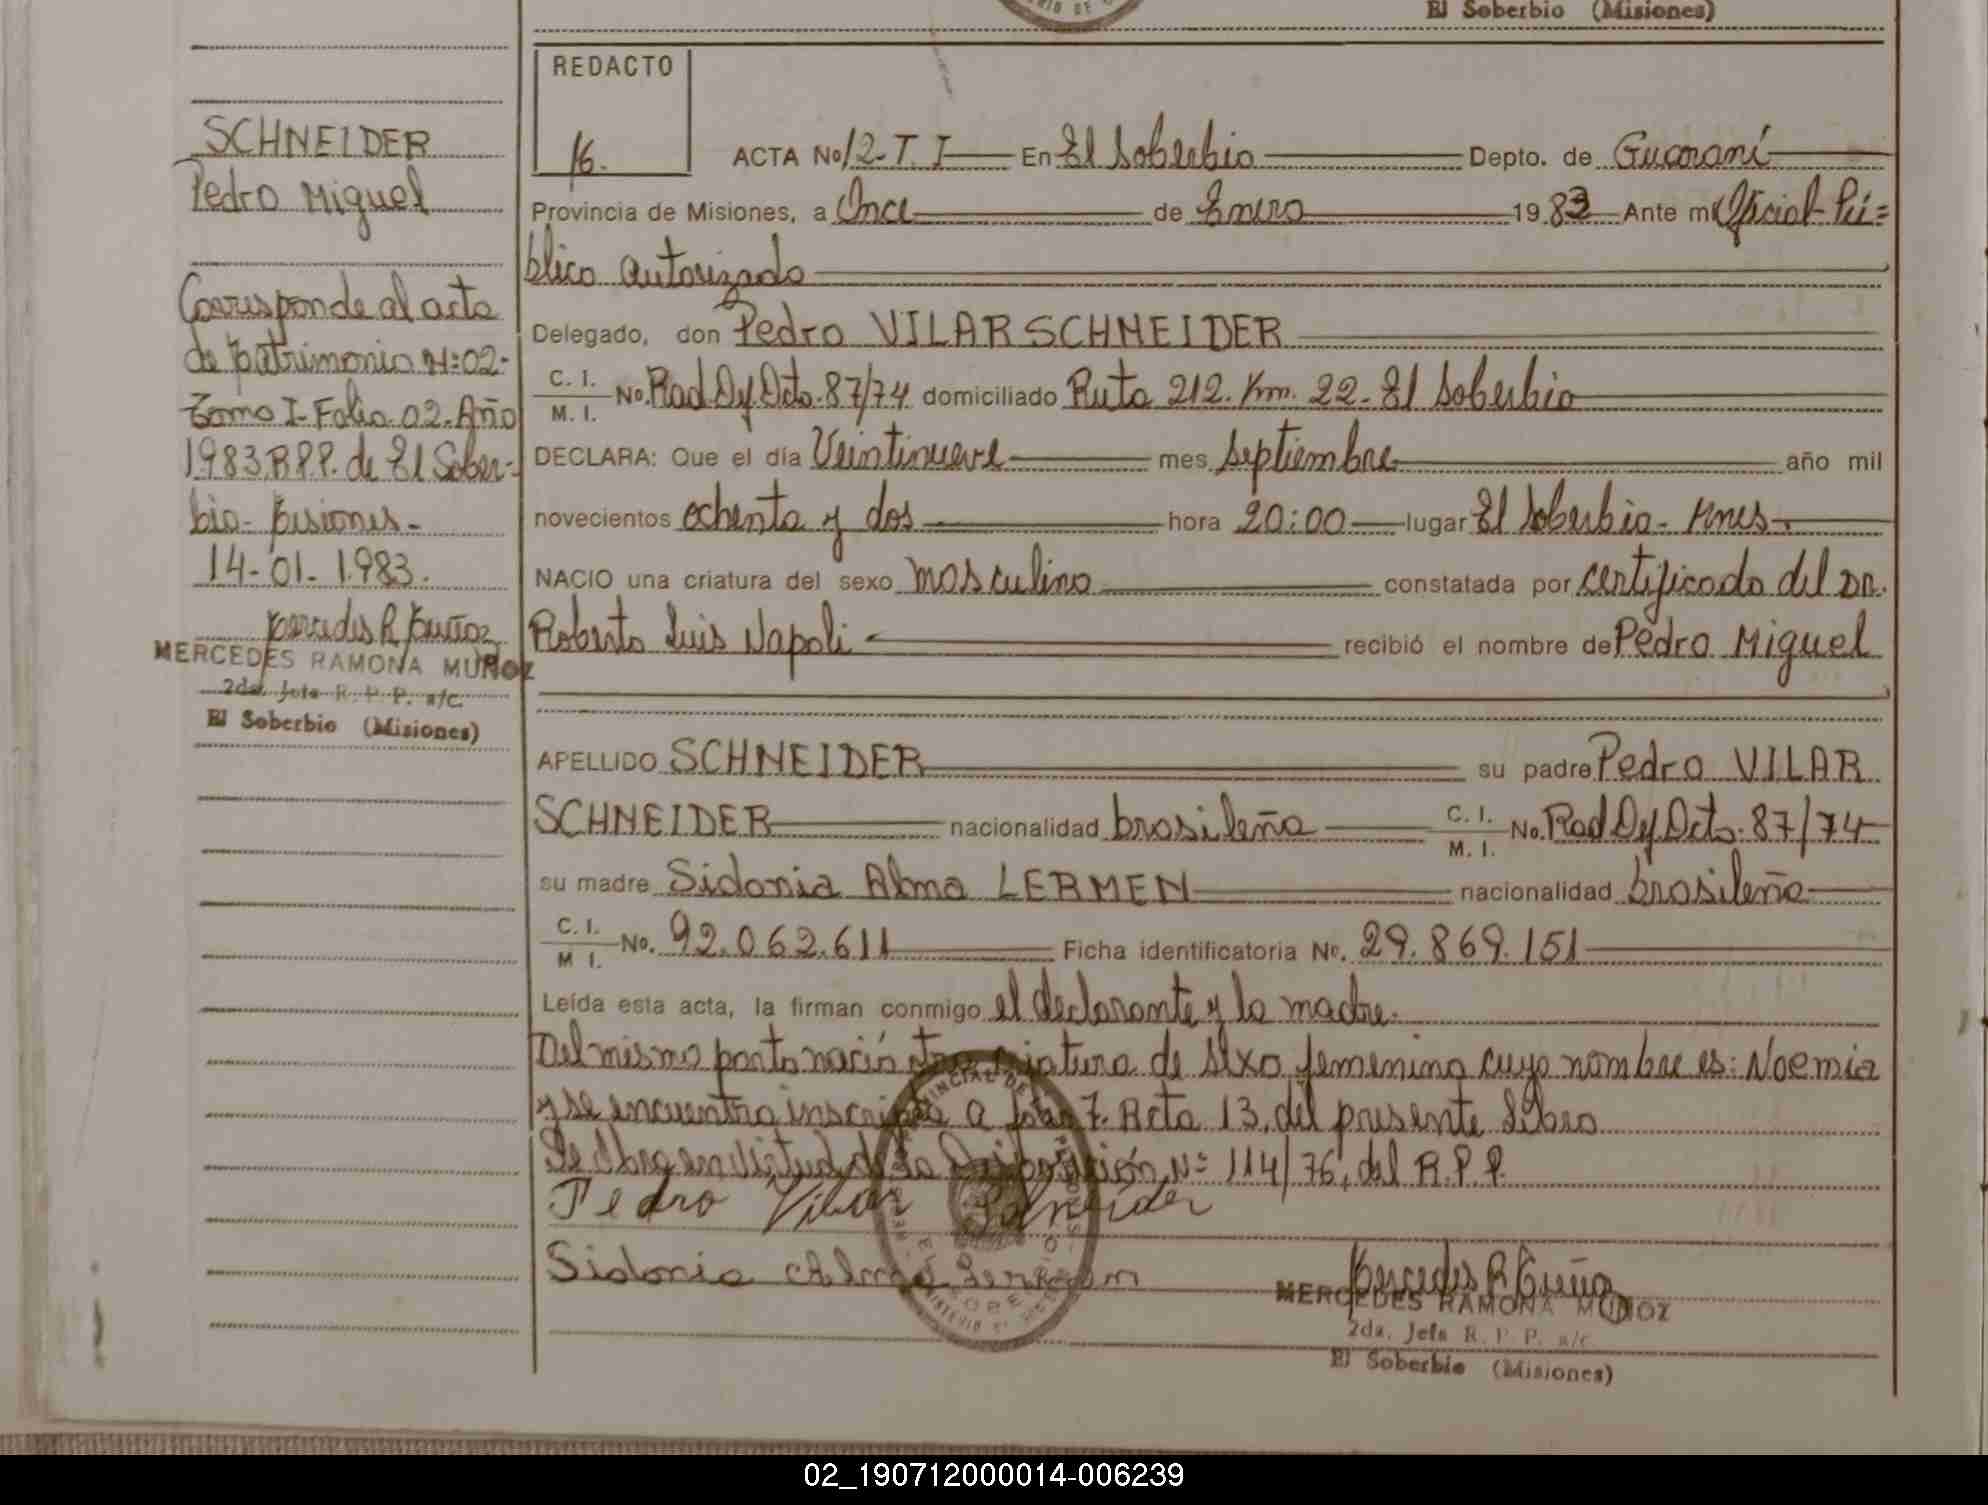 El Soberbio (Misiones)
REDACTO
16.
SCHNEIDER
Pedro Miguel
Corresponde al acta
de Matrimonio Nº 02-
Tomo I- Folio 02- Año
1983 R.P.P. de El Sober-
bio- Misiones-
14-01-1983.
Mercedes R Muñoz
MERCEDES RAMONA MUÑOZ
2da. Jefa R. P. P. a/c.
El Soberbio (Misiones)
ACTA No 12-T. I En El Soberbio Depto. de Guaraní
Provincia de Misiones, a Once de Enero 1983 Ante mi Oficial Pú=
blico autorizado
Delegado, don Pedro VILAR SCHNEIDER
C. I.
M. I. No. Rad Dy Dcto. 87/74 domiciliado Ruta 212. Km. 22- El Soberbio
DECLARA: Que el día Veintinueve mes Septiembre año mil
novecientos ochenta y dos hora 20:00 lugar El Soberbio- Mnes-
NACIO una criatura del sexo masculino constatada por certificado del DR.
Roberto Luis Napoli recibió el nombre de Pedro Miguel
APELLIDO SCHNEIDER su padre Pedro VILAR
SCHNEIDER nacionalidad brasileña C. I. M. I. No. Rad Dy Dcto. 87/74
su madre Sidonia Alma LERMEN nacionalidad brasileña
C. I.
M I. No. 92.062.611 Ficha identificatoria No. 29.869.151
Leída esta acta, la firman conmigo el declarante y la madre.
Del mismo parto nació otra criatura de sexo femenino cuyo nombre es: Noemia
y se encuentra inscripta a folio 7. Acta 13, del presente Libro
Se labra en virtud de la Disposición Nº 114/76, del R.P.P.
Pedro Vilar Schneider
Sidonia Alma Lermen
Mercedes R Muñoz
MERCEDES RAMONA MUÑOZ
2da. Jefa R. P. P. a/c.
El Soberbio (Misiones)
02_190712000014-006239